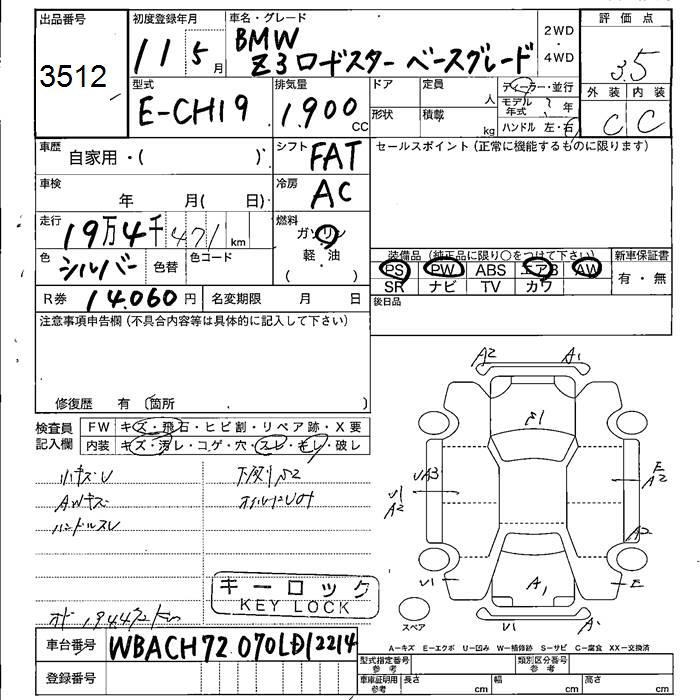 出品番号
3512
初度登録年月
11 5月
車名・グレード
BMW
Z3ロードスター ベースグレード
2WD
・
4WD
評価点
3.5
外装 内装
C C
型式
E-CH19
排気量
1,900 CC
ドア
形状
定員
人
積載
kg
ディーラー・並行
モデル年式 年
ハンドル 左・右
車歴
自家用・( )
シフト
FAT
セールスポイント(正常に機能するものに限ります)
車検
年 月( 日)
冷房
AC
走行
19万4千471km
燃料
ガソリン
軽・油
( )
色
シルバー
色替
色コード
装備品(純正品に限り○をつけて下さい)
PS PW ABS エアB AW
SR ナビ TV カワ
新車保証書
有・無
R券 14.060円
名変期限 月 日
後日品
注意事項申告欄(不具合内容等は具体的に記入して下さい)
修復歴 有 (箇所 )
検査員
記入欄
FW キズ・飛石・ヒビ割・リペア跡・X要
内装 キズ・汚レ・コゲ・穴・スレ・キレ・破レ
A.Wキズ
ハンドルスレ
キーロック
KEY LOCK
A2 A1
E1
UA3
U1
A2
E
A2
A2
U1
A1
E
U1
スペア
A-キズ E-エクボ U-凹み W-補修跡 S-サビ C-腐食 XX-交換済
車台番号 WBACH72070LD12214
登録番号
型式指定番号
参考
類別区分番号
参考
車庫証明用
参考
長さ cm 幅 cm 高さ cm